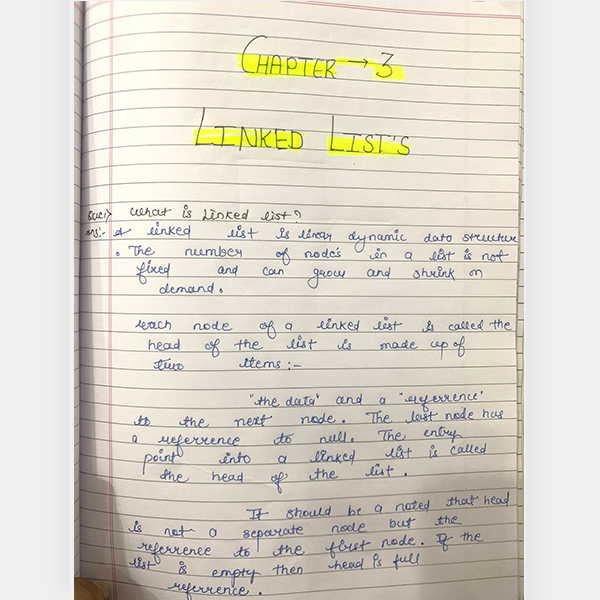 CHAPTER → 3
LINKED LIST'S
Que:> What is Linked list?
Ans:- A linked list is linear dynamic data structure
. The number of node's in a list is not
fixed and can grow and shrink on
demand.
each node of a linked list is called the
head of the list is made up of
two items :-
"the data" and a "referrence"
to the next node. The last node has
a referrence to null. The entry
point into a linked list is called
the head of the list.
It should be a noted that head
is not a separate node but the
referrence to the first node. If the
list is empty then head is full
referrence.